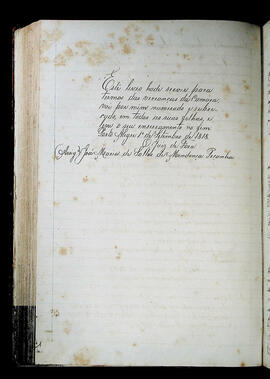 Este livro hade servir para
termos das vereanças da Camara,
vai por mim numerado e rubri-
cado, em todas as suas folhas, e
leva o seu encerramento no fim
Porto Alegre 1º de Setembro de 1818.
O Juiz de Fora
José Maria de Salles de Mendonça Peçanha